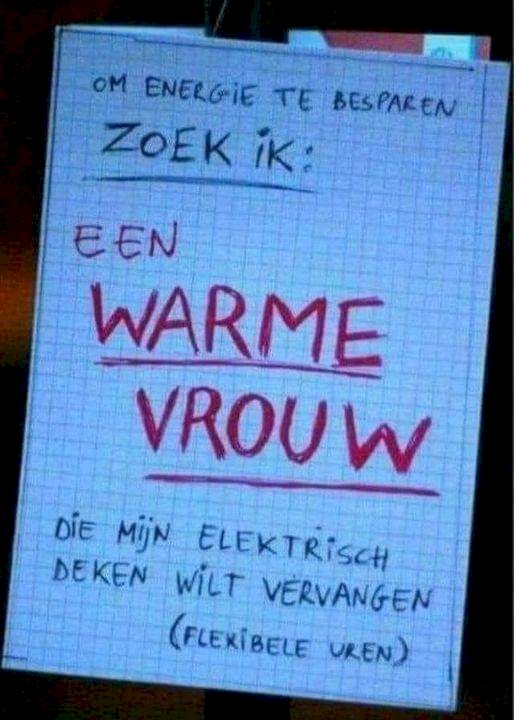 OM ENERGIE TE BESPAREN
ZOEK IK:
EEN
WARME
VROUW
DIE MIJN ELEKTRISCH
DEKEN WILT VERVANGEN
(FLEXIBELE UREN)